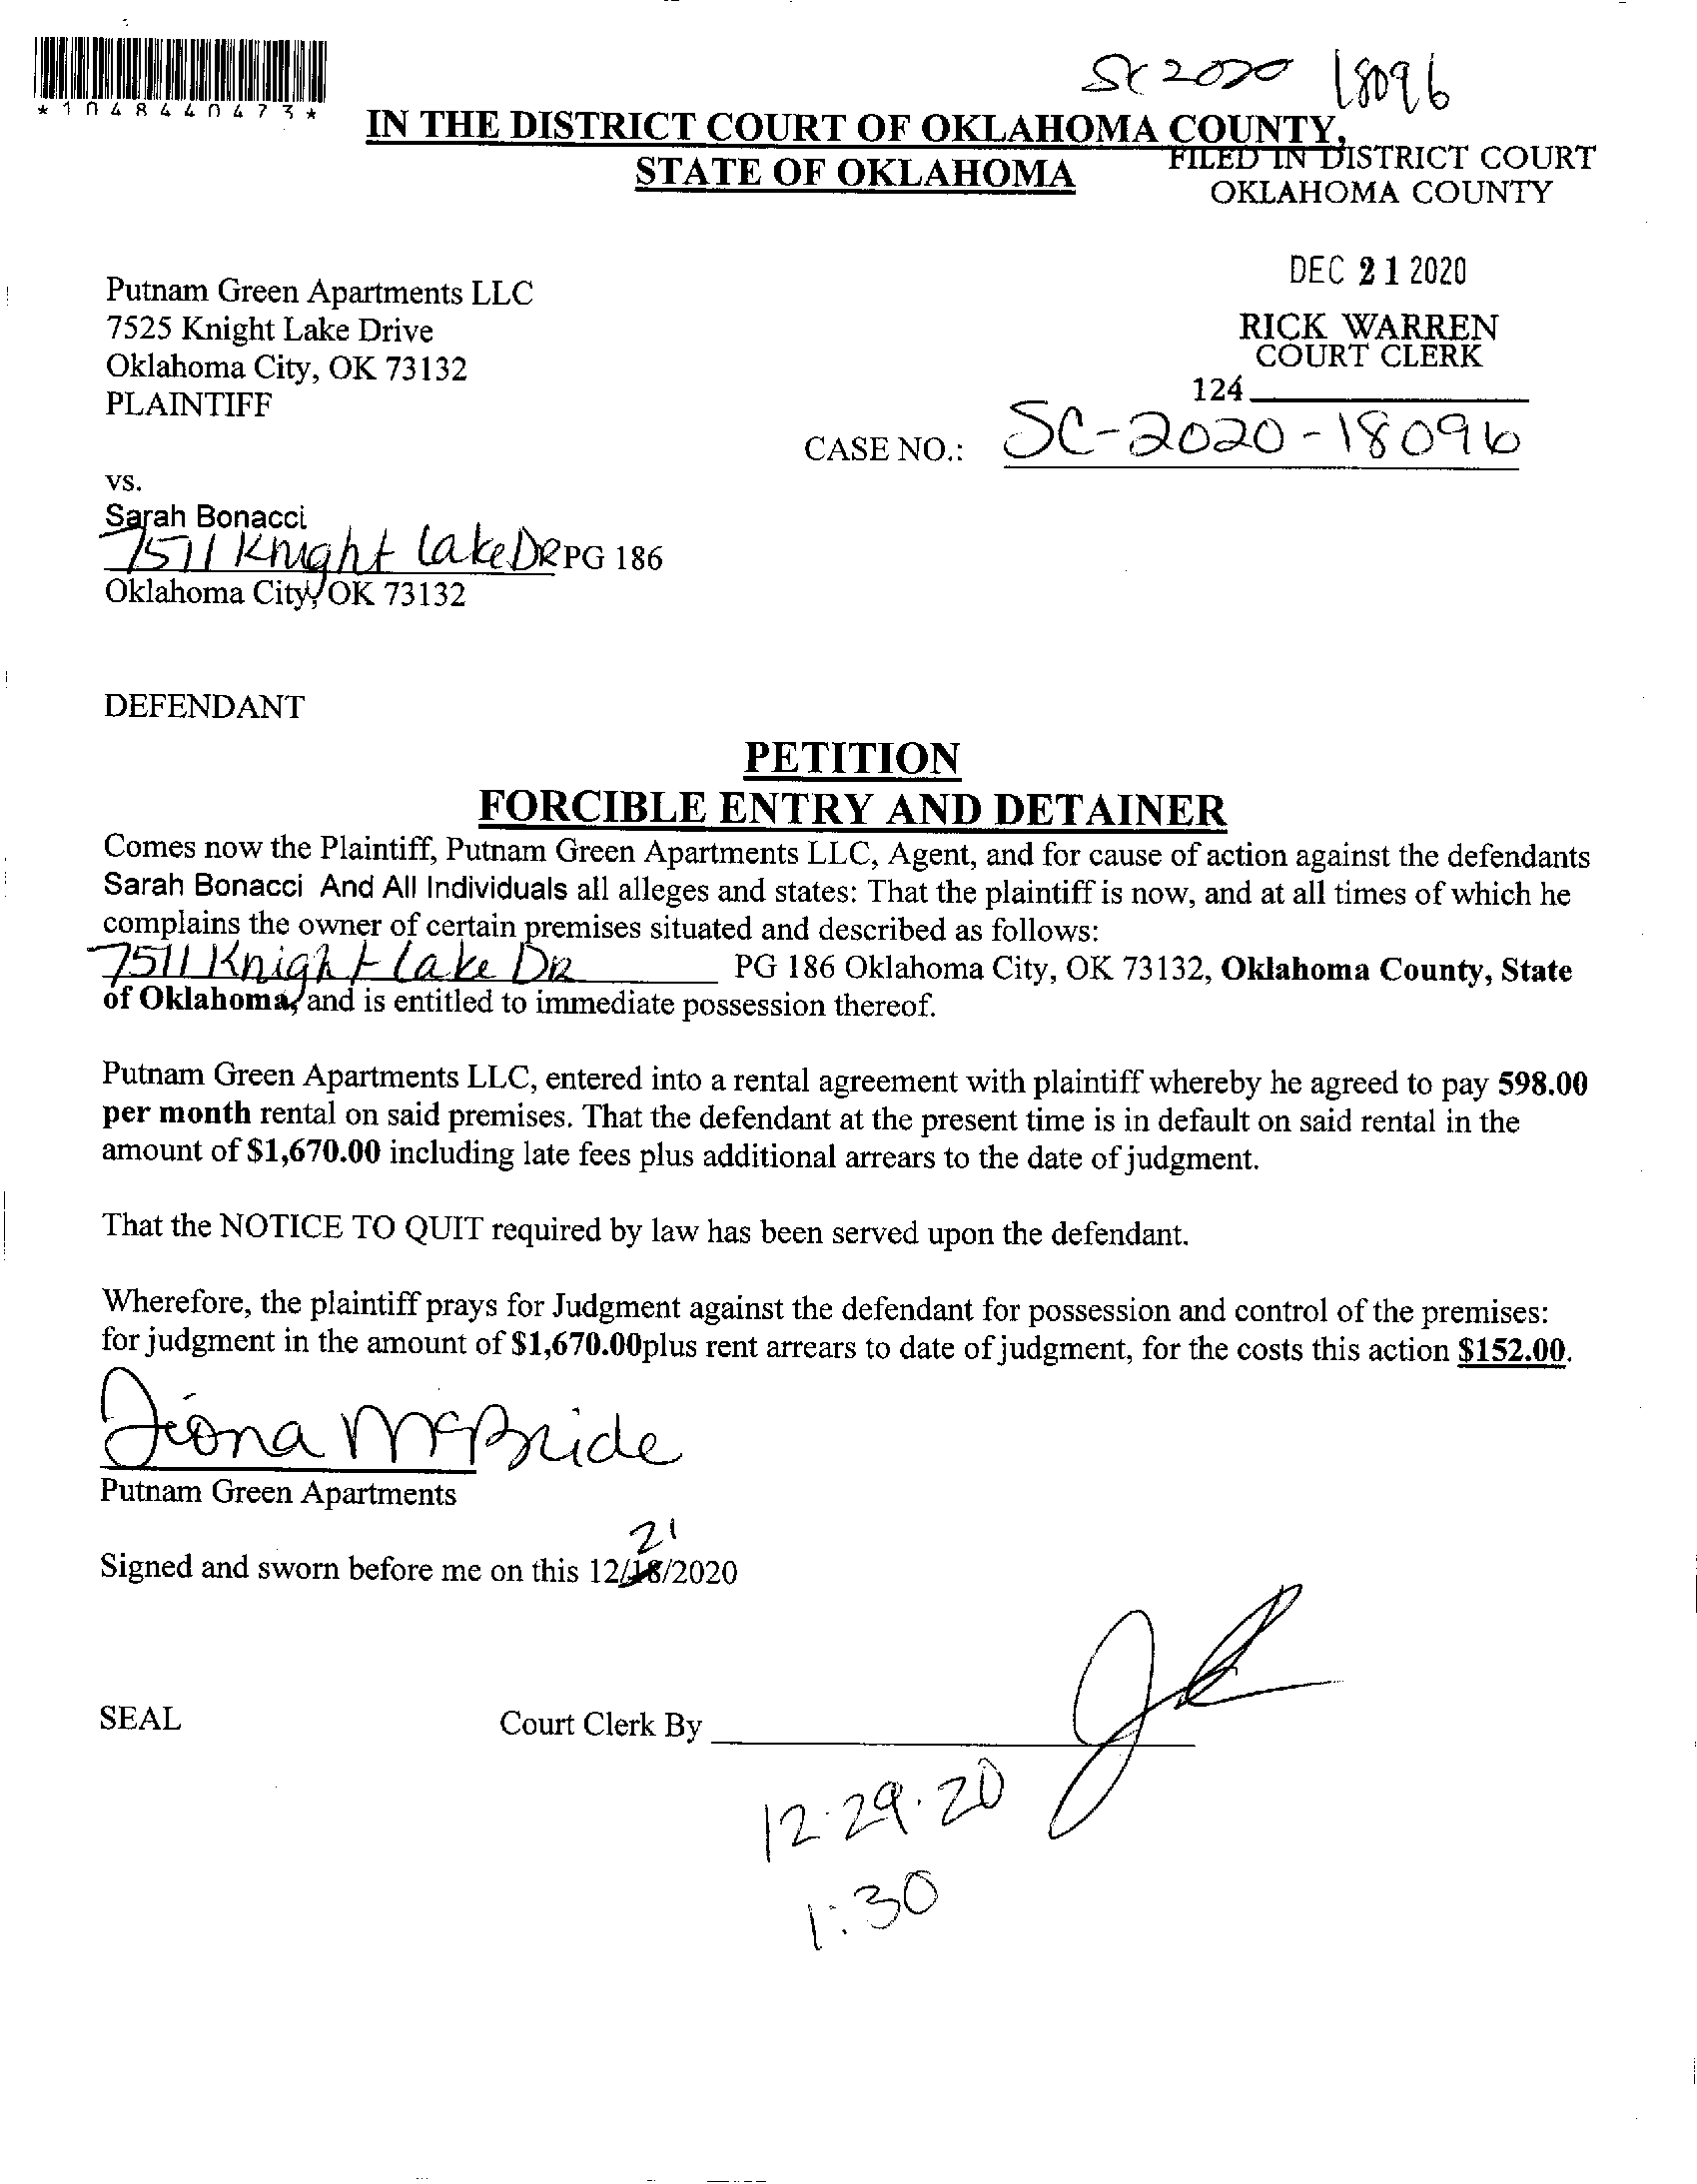 SC 2020 18096
*1048440473*
IN THE DISTRICT COURT OF OKLAHOMA COUNTY,
STATE OF OKLAHOMA
FILED IN DISTRICT COURT
OKLAHOMA COUNTY
DEC 21 2020
RICK WARREN
COURT CLERK
124
Putnam Green Apartments LLC
7525 Knight Lake Drive
Oklahoma City, OK 73132
PLAINTIFF
CASE NO.: SC-2020-18096
vs.
Sarah Bonacci
7511 Knight Lake DR PG 186
Oklahoma City, OK 73132
DEFENDANT
PETITION
FORCIBLE ENTRY AND DETAINER
Comes now the Plaintiff, Putnam Green Apartments LLC, Agent, and for cause of action against the defendants
Sarah Bonacci And All Individuals all alleges and states: That the plaintiff is now, and at all times of which he
complains the owner of certain premises situated and described as follows:
7511 Knight Lake DR PG 186 Oklahoma City, OK 73132, Oklahoma County, State
of Oklahoma, and is entitled to immediate possession thereof.
Putnam Green Apartments LLC, entered into a rental agreement with plaintiff whereby he agreed to pay 598.00
per month rental on said premises. That the defendant at the present time is in default on said rental in the
amount of $1,670.00 including late fees plus additional arrears to the date of judgment.
That the NOTICE TO QUIT required by law has been served upon the defendant.
Wherefore, the plaintiff prays for Judgment against the defendant for possession and control of the premises:
for judgment in the amount of $1,670.00plus rent arrears to date of judgment, for the costs this action $152.00.
Fiona McBride
Putnam Green Apartments
21
Signed and sworn before me on this 12/18/2020
SEAL Court Clerk By
12.29.20
1:30